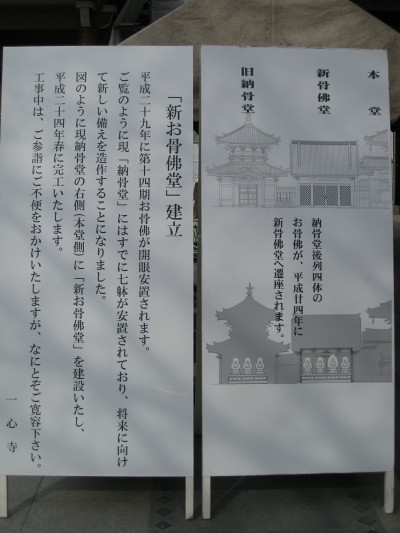 「新お骨佛堂」建立
平成二十九年に第十四期お骨佛が開眼安置されます。
ご覧のように現「納骨堂」にはすでに七躰が安置されており、将来に向け
て新しい備えを造作することになりました。
図のように現納骨堂の右側(本堂側)に「新お骨佛堂」を建設いたし、
平成二十四年春に完工いたします。
工事中は、ご参詣にご不便をおかけいたしますが、なにとぞご寛容下さい。
一心寺
本堂
新骨佛堂
旧納骨堂
納骨堂後列四体の
お骨佛が、平成廿四年に
新骨佛堂へ遷座されます。